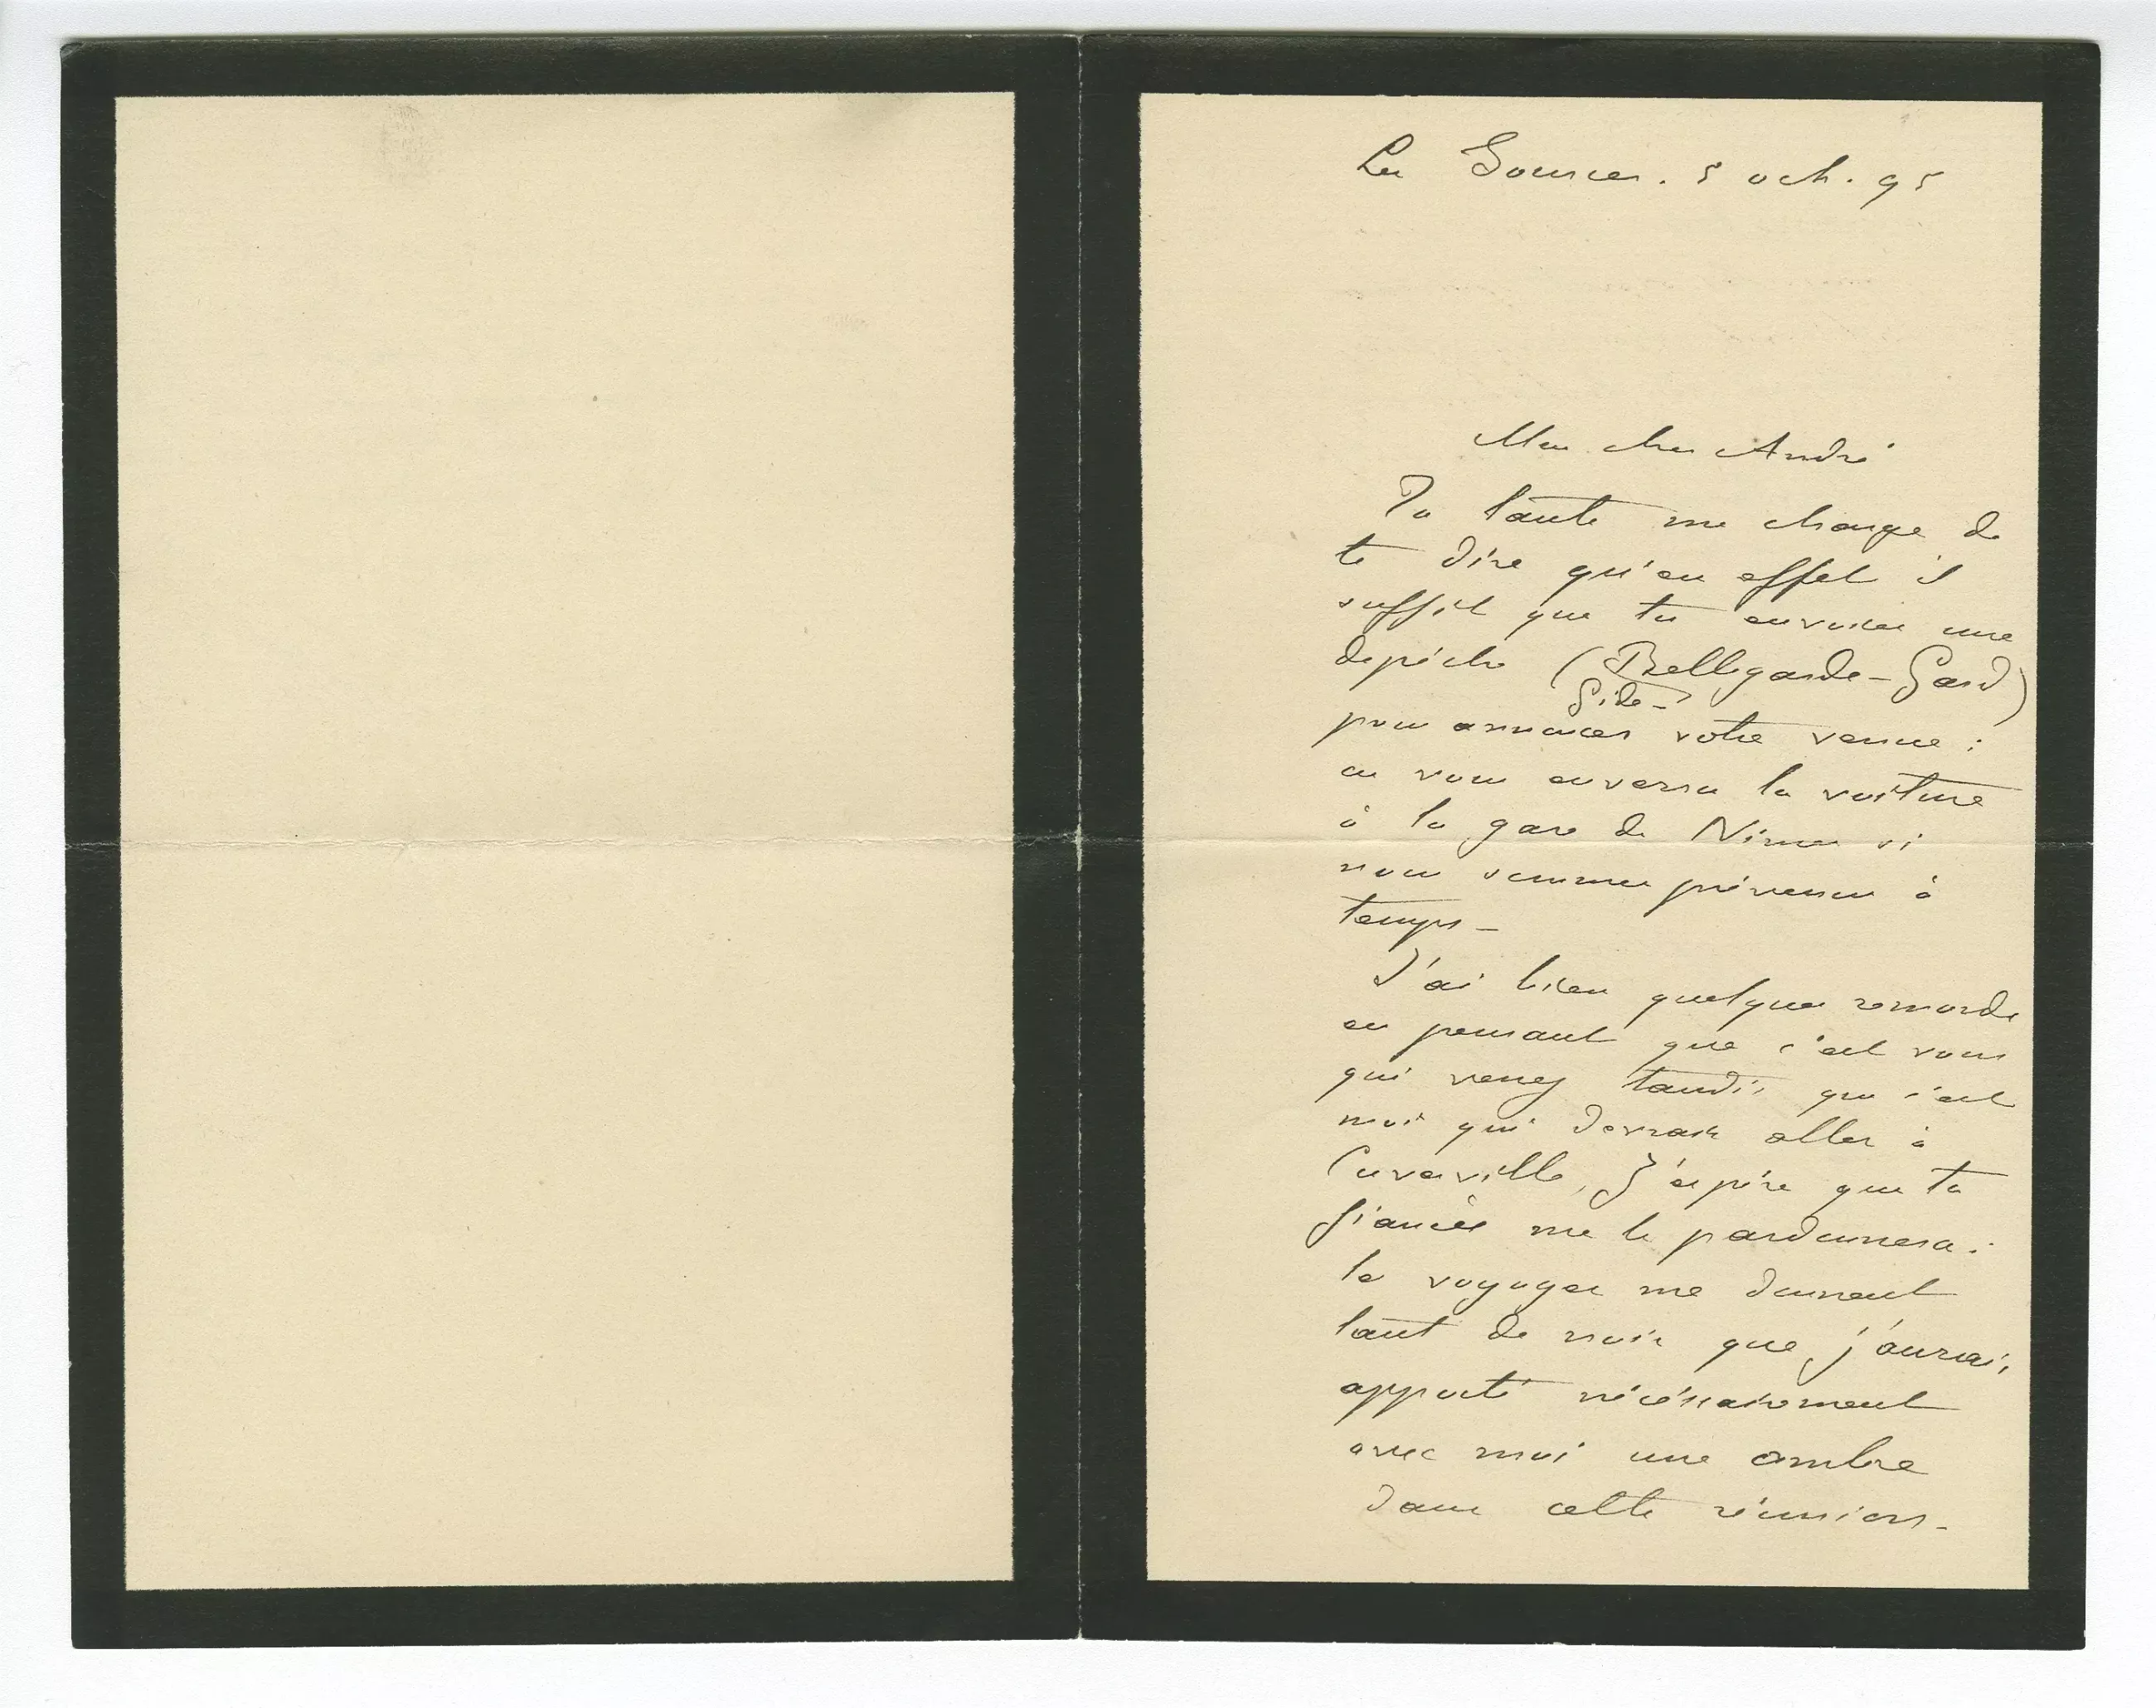 Les Sources. 5 oct. 95
Mon cher André
Ta tante me charge de
te dire qu'en effet il
suffit que tu envoies une
dépêche (Bellegarde-Gard)
Gide-
pour annoncer votre venue :
on vous enverra la voiture
à la gare de Nimes si
nous sommes prévenus à
temps-
J'ai bien quelques remords
en pensant que c'est vous
qui venez tandis que c'est
moi qui devrais aller à
Cuverville, J'espère que ta
fiancée me le pardonnera :
les voyages me donnent
tant de noir que j'aurais
apporté nécéssairement
avec moi une ombre
dans cette réunion-